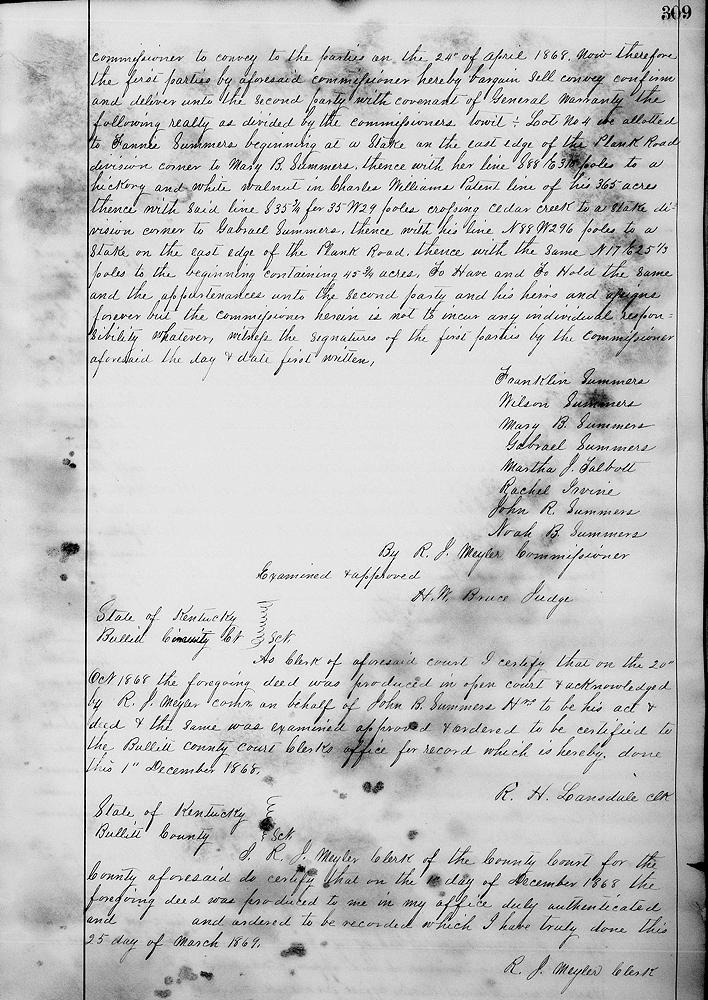 309
commissioner to convey to the parties on the 24" of April 1868. Now therefore
the first parties by aforesaid commissioner hereby bargain sell convey confirm
and deliver unto the second party with covenant of General Warranty the
following realty as divided by the commissioners towit ÷ Lot No 4 allotted
to Fannie Summers beginning at a stake on the east edge of the Plank Road
division corner to Mary B. Summers, thence with her line S88 E poles to a
hickory and white walnut in Charles Williams Patent line of his 365 acres
thence with said line S 35 3/4 for 35 W 29 poles crossing cedar creek to a stake di-
vision corner to Gabrael Summers, thence with his line N 88 W 296 poles to a
stake on the east edge of the Plank Road, thence with the same N 17 E 25 1/3
poles to the beginning containing 45 3/4 acres, To Have and To Hold the same
and the appurtenances unto the second party and his heirs and assigns
forever but the commissioner herein is not to incur any individual respon=
sibility whatever, witness the signatures of the first parties by the commissioner
aforesaid the day & date first written,
Franklin Summers
Wilson Summers
Mary B. Summers
Gabrael Summers
Martha J. Talbott
Rachel Irvine
John R. Summers
Noah B. Summers
By R. J. Meyler Commissioner
Examined & approved
H. W. Bruce Judge
State of Kentucky
Bullitt Ct Sct
As Clerk of aforesaid court I certify that on the 20"
Oct 1868 the foregoing deed was produced in open court & acknowledged
by R. J. Meyar comr on behalf of John B. Summers Hrs to be his act &
deed & the same was examined approved & ordered to be certified to
the Bullitt county court Clerks office for record which is hereby. done
this 1" December 1868.
R. H. Lansdale clk
State of Kentucky
Bullitt County Sct
I, R. J. Meyler Clerk of the County Court for the
County aforesaid do certify that on the day of December 1868 the
foregoing deed was produced to me in my office duly authenticated
and and ordered to be recorded which I have truly done this
25 day of March 1869.
R. J. Meyler Clerk